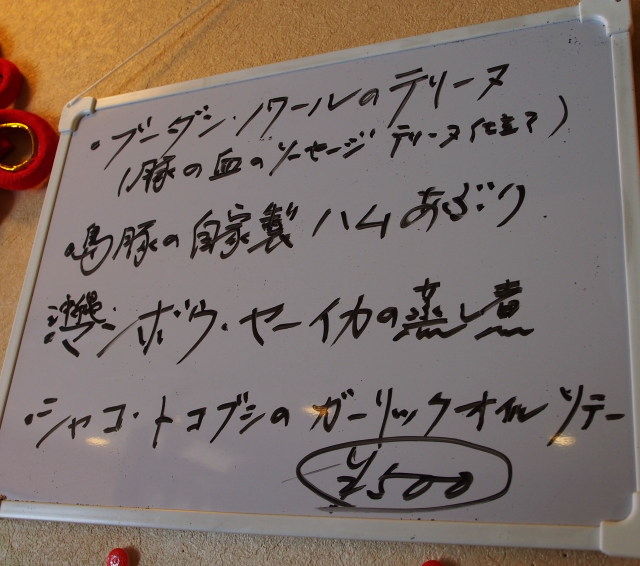 ・ブーダン・ノワールのテリーヌ
(豚の血のソーセージ テリーヌ仕立て)
・島豚の自家製ハムあぶり
沖縄マンボウ・セーイカの蒸し煮
・シャコ・トコブシのガーリックオイルソテー
¥500